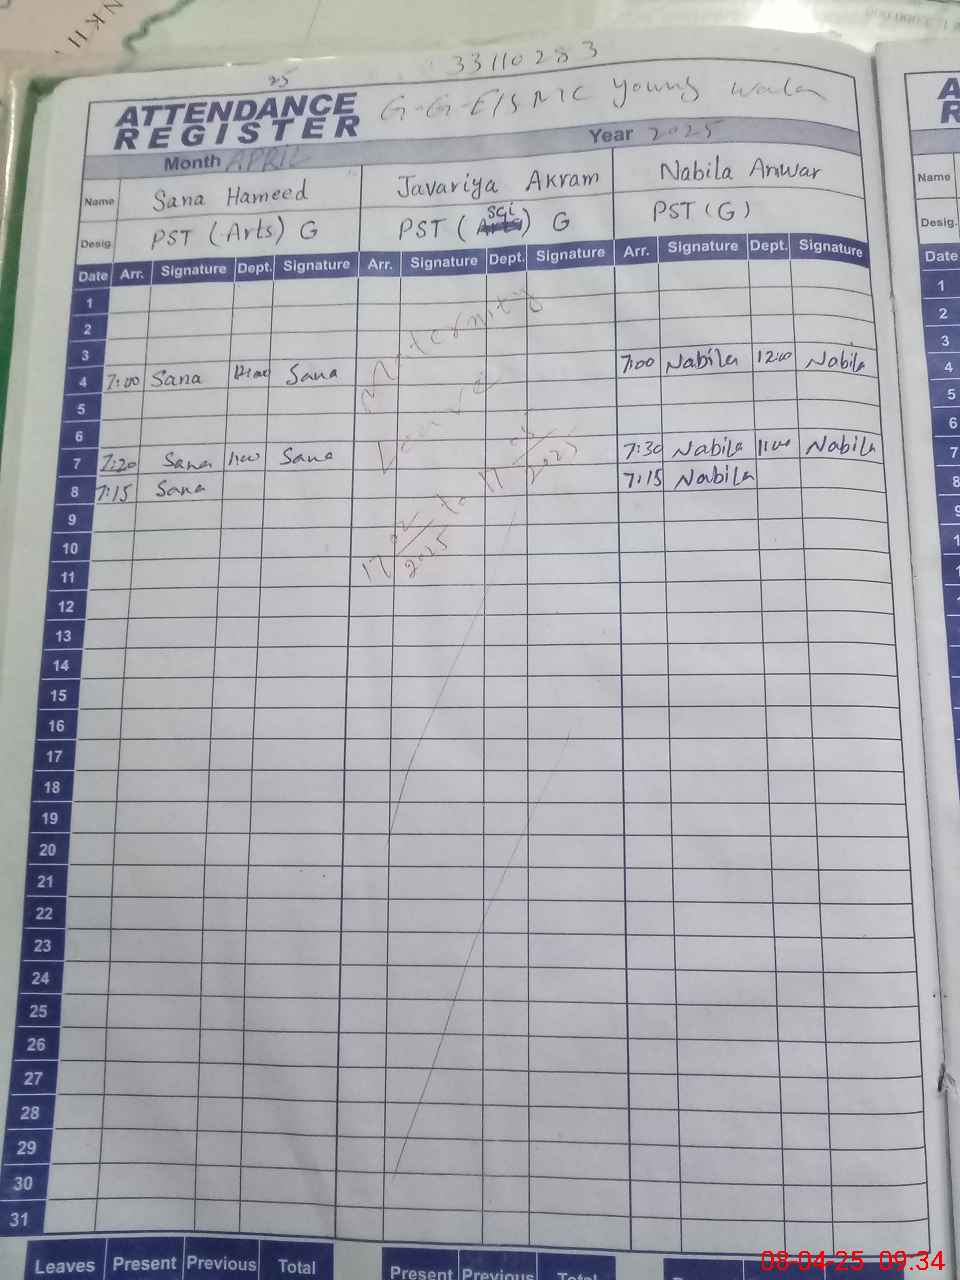 NKH
33110283
25
ATTENDANCE
REGISTER
Young
Month APRIL Year 2025
Name Sana Hameed Javariya Akram Nabila Anwar
Desig. PST (Arts) G PST (Sci) G PST (G)
Date Arr. Signature Dept. Signature Arr. Signature Dept. Signature Arr. Signature Dept. Signature
1
2
3
4 7:00 Sana Sana 7:00 Nabila 12:00 Nabila
5
6
7 7:20 Sana 11:00 Sana 7:30 Nabila 11:00 Nabila
8 7:15 Sana 7:15 Nabila
Maternity
Leave
17 02/2025 to 17 /2025
9
10
11
12
13
14
15
16
17
18
19
20
21
22
23
24
25
26
27
28
29
30
31
Leaves Present Previous Total Present Previous Total
Name
Desig.
Date
1
2
3
4
5
6
7
8
08-04-25 09:34